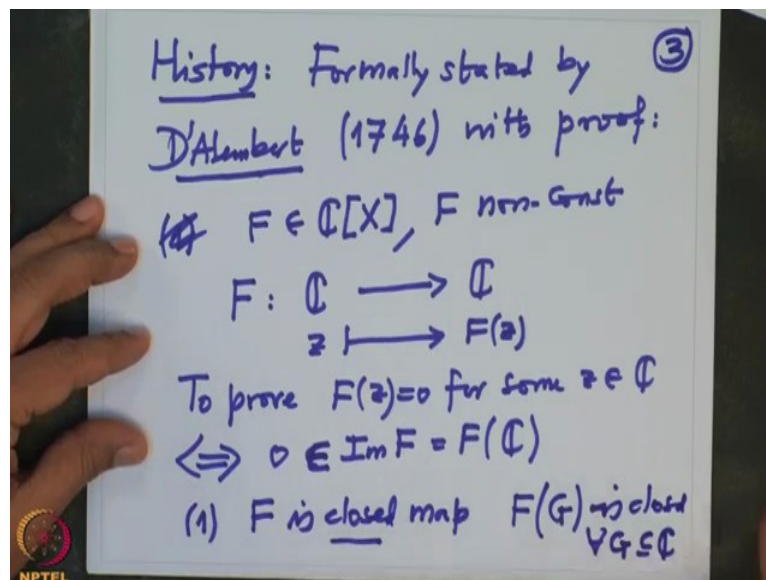 History: Formally stated by ③
D'Alembert (1746) with proof:
F ∈ ℂ[X], F non-Const
F: ℂ ⟶ ℂ
z ⟼ F(z)
To prove F(z)=0 for some z ∈ ℂ
⟺ 0 ∈ Im F = F(ℂ)
(1) F is closed map F(G) is closed
∀G ⊆ ℂ
NPTEL